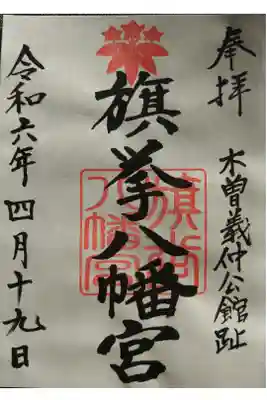 奉拝
木曽義仲公館趾
旗挙八幡宮
令和六年四月十九日